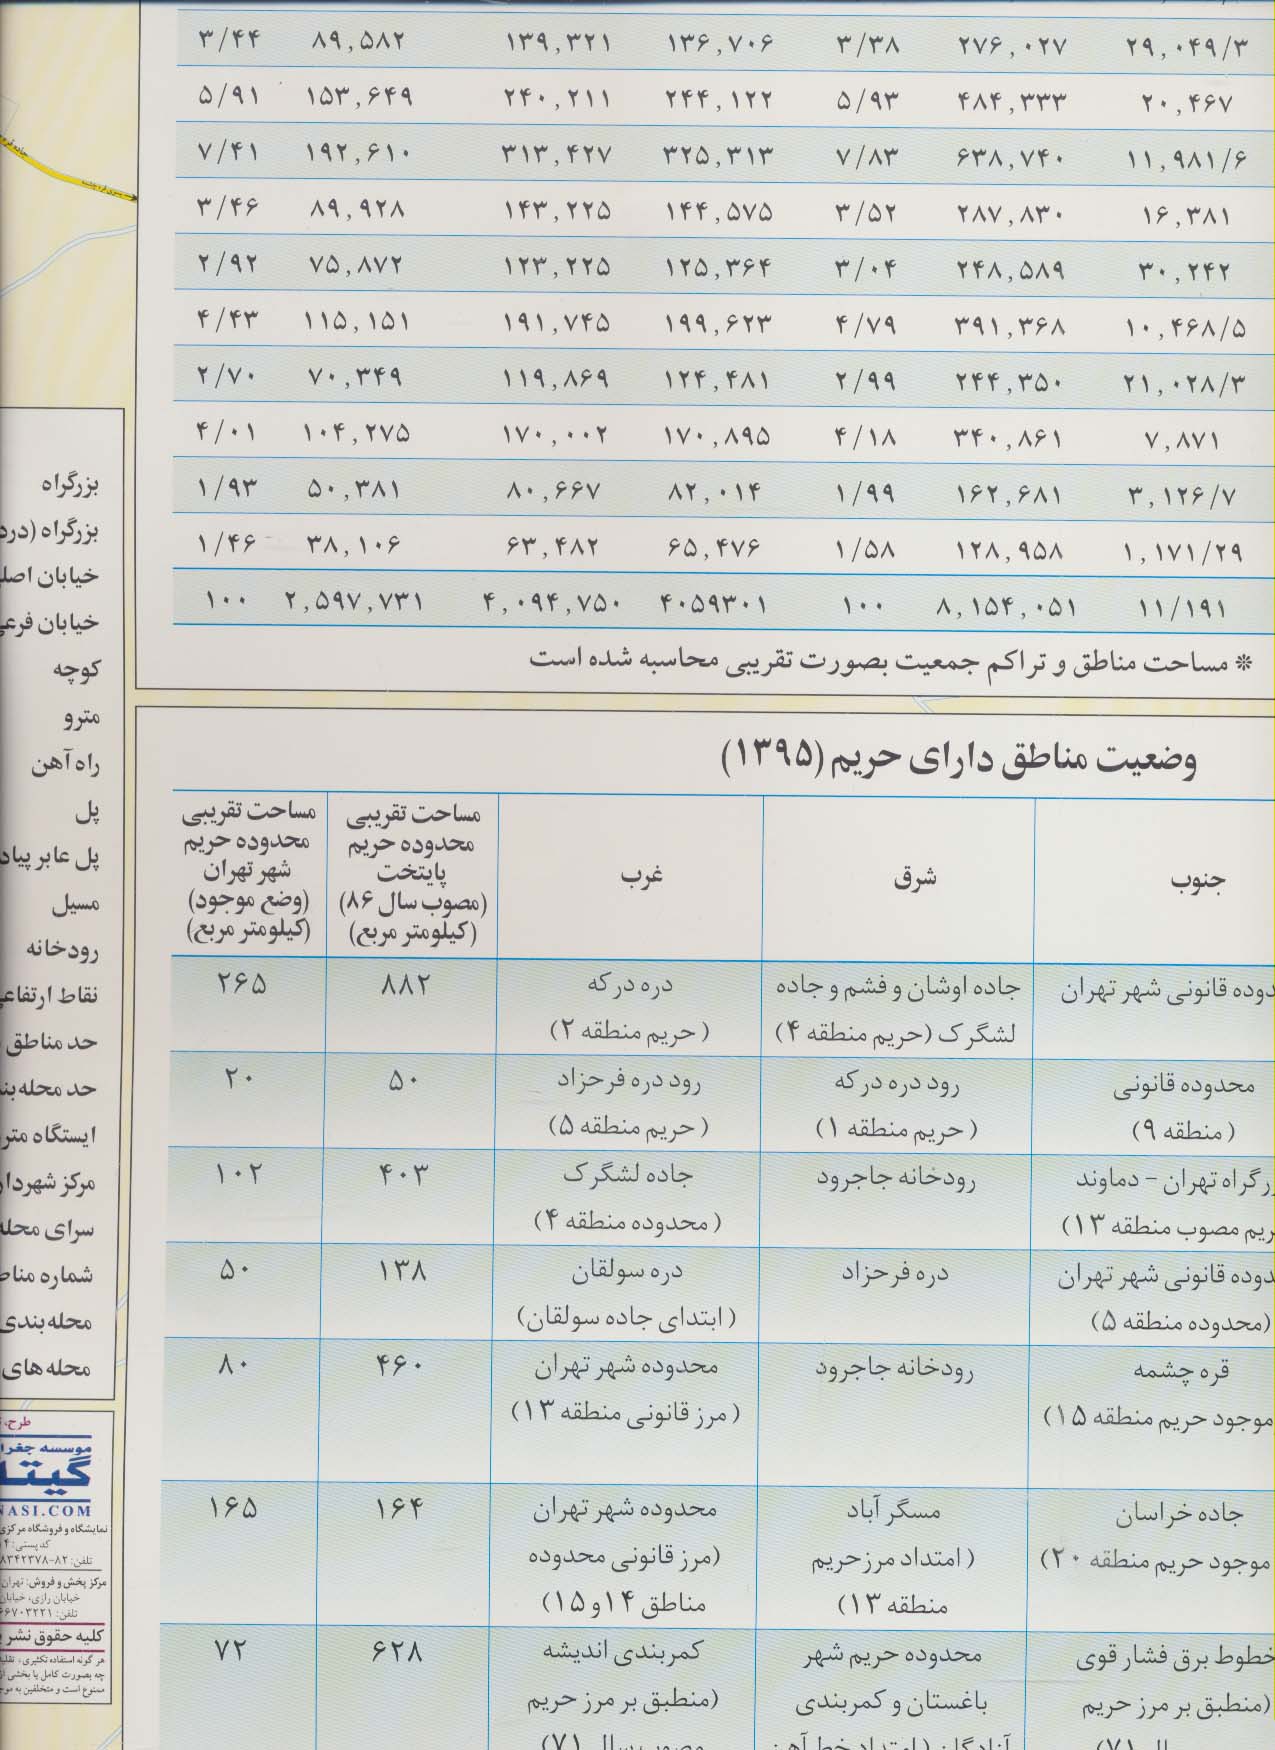 ۲۹,۰۴۹/۳ ۲۷۶,۰۲۷ ۳/۳۸ ۱۳۶,۷۰۶ ۱۳۹,۳۲۱ ۸۹,۵۸۲ ۳/۴۴
۲۰,۴۶۷ ۴۸۴,۳۳۳ ۵/۹۳ ۲۴۴,۱۲۲ ۲۴۰,۲۱۱ ۱۵۳,۶۴۹ ۵/۹۱
۱۱,۹۸۱/۶ ۶۳۸,۷۴۰ ۷/۸۳ ۳۲۵,۳۱۳ ۳۱۳,۴۲۷ ۱۹۲,۶۱۰ ۷/۴۱
۱۶,۳۸۱ ۲۸۷,۸۳۰ ۳/۵۲ ۱۴۴,۵۷۵ ۱۴۳,۲۲۵ ۸۹,۹۲۸ ۳/۴۶
۳۰,۲۴۲ ۲۴۸,۵۸۹ ۳/۰۴ ۱۲۵,۳۶۴ ۱۲۳,۲۲۵ ۷۵,۸۷۲ ۲/۹۲
۱۰,۴۶۸/۵ ۳۹۱,۳۶۸ ۴/۷۹ ۱۹۹,۶۲۳ ۱۹۱,۷۴۵ ۱۱۵,۱۵۱ ۴/۴۳
۲۱,۰۲۸/۳ ۲۴۴,۳۵۰ ۲/۹۹ ۱۲۴,۴۸۱ ۱۱۹,۸۶۹ ۷۰,۳۴۹ ۲/۷۰
۷,۸۷۱ ۳۴۰,۸۶۱ ۴/۱۸ ۱۷۰,۸۹۵ ۱۷۰,۰۰۲ ۱۰۴,۲۷۵ ۴/۰۱
۳,۱۲۶/۷ ۱۶۲,۶۸۱ ۱/۹۹ ۸۲,۰۱۴ ۸۰,۶۶۷ ۵۰,۳۸۱ ۱/۹۳
۱,۱۷۱/۲۹ ۱۲۸,۹۵۸ ۱/۵۸ ۶۵,۴۷۶ ۶۳,۴۸۲ ۳۸,۱۰۶ ۱/۴۶
۱۱/۱۹۱ ۸,۱۵۴,۰۵۱ ۱۰۰ ۴۰۵۹۳۰۱ ۴,۰۹۴,۷۵۰ ۲,۵۹۷,۷۳۱ ۱۰۰
* مساحت مناطق و تراکم جمعیت بصورت تقریبی محاسبه شده است
وضعیت مناطق دارای حریم (۱۳۹۵)
جنوب
شرق
غرب
مساحت تقریبی
محدوده حریم
پایتخت
(مصوب سال ۸۶)
(کیلومتر مربع)
مساحت تقریبی
محدوده حریم
شهر تهران
(وضع موجود)
(کیلومتر مربع)
دوده قانونی شهر تهران
جاده اوشان و فشم و جاده
لشگرک (حریم منطقه ۴)
دره درکه
(حریم منطقه ۲)
۸۸۲
۲۶۵
محدوده قانونی
(منطقه ۹)
رود دره درکه
(حریم منطقه ۱)
رود دره فرحزاد
(حریم منطقه ۵)
۵۰
۲۰
رگراه تهران - دماوند
ریم مصوب منطقه ۱۳)
رودخانه جاجرود
جاده لشگرک
(محدوده منطقه ۴)
۴۰۳
۱۰۲
دوده قانونی شهر تهران
(محدوده منطقه ۵)
دره فرحزاد
دره سولقان
(ابتدای جاده سولقان)
۱۳۸
۵۰
قره چشمه
موجود حریم منطقه ۱۵)
رودخانه جاجرود
محدوده شهر تهران
(مرز قانونی منطقه ۱۳)
۴۶۰
۸۰
جاده خراسان
موجود حریم منطقه ۲۰)
مسگر آباد
(امتداد مرز حریم
منطقه ۱۳)
محدوده شهر تهران
(مرز قانونی محدوده
مناطق ۱۴ و ۱۵)
۱۶۴
۱۶۵
خطوط برق فشار قوی
(منطبق بر مرز حریم
محدوده حریم شهر
باغستان و کمربندی
آزادگان (امتداد خط آهن
کمربندی اندیشه
(منطبق بر مرز حریم
مصوب سال ۷۱)
۶۲۸
۷۲
بزرگراه
بزرگراه (درد
خیابان اصل
خیابان فرعی
کوچه
مترو
راه آهن
پل
پل عابر پیاد
مسیل
رودخانه
نقاط ارتفاعی
حد مناطق
حد محله بند
ایستگاه متر
مرکز شهردار
سرای محله
شماره مناط
محله بندی
محله های
طرح،
موسسه جغرا
گیتا
NASI.COM
نمایشگاه و فروشگاه مرکزی
کدپستی: ۱۴
تلفن: ۸۲-۸۳۴۲۳۷۸
مرکز پخش و فروش: تهران
خیابان رازی، خیابان
تلفن: ۶۶۷۰۳۲۲۱
کلیه حقوق نشر
هر گونه استفاده تکثیری، تقلید
چه بصورت کامل یا بخشی از
ممنوع است و متخلفین به موج